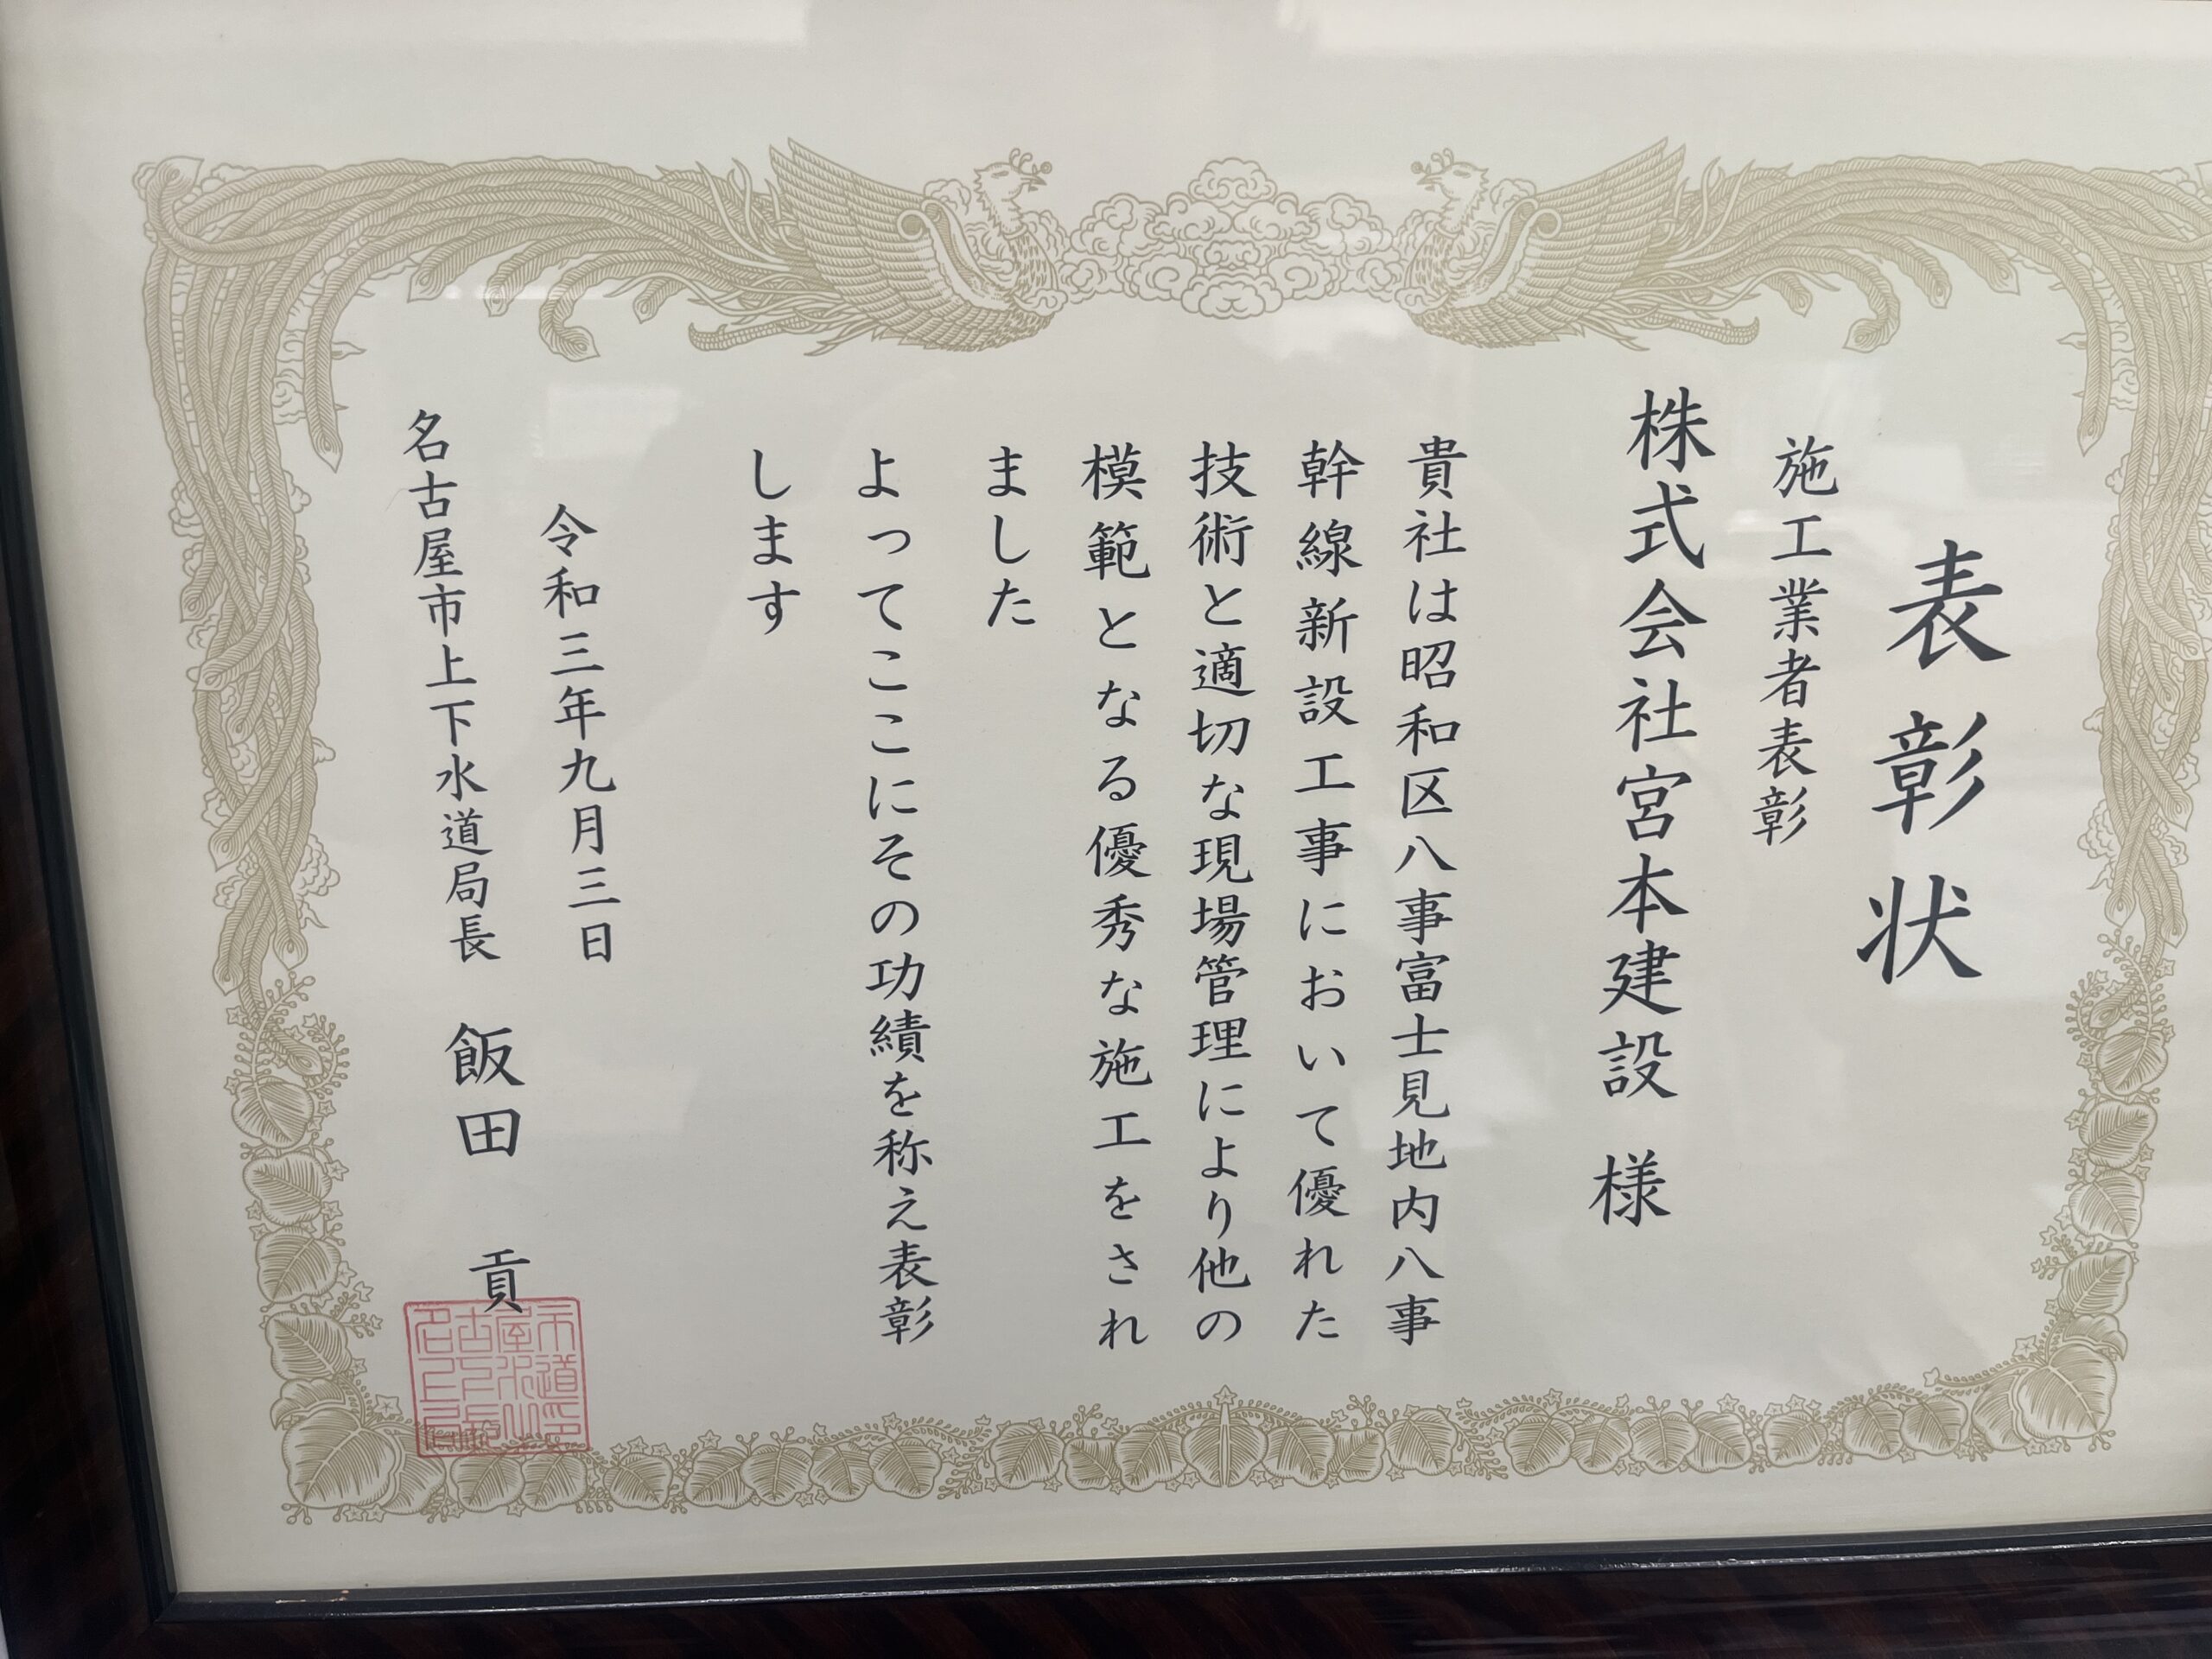 表彰状
施工業者表彰
株式会社宮本建設 様
貴社は昭和区八事富士見地内八事
幹線新設工事において優れた
技術と適切な現場管理により他の
模範となる優秀な施工をされ
ました
よってここにその功績を称え表彰
します
令和三年九月三日
名古屋市上下水道局長 飯田 貢